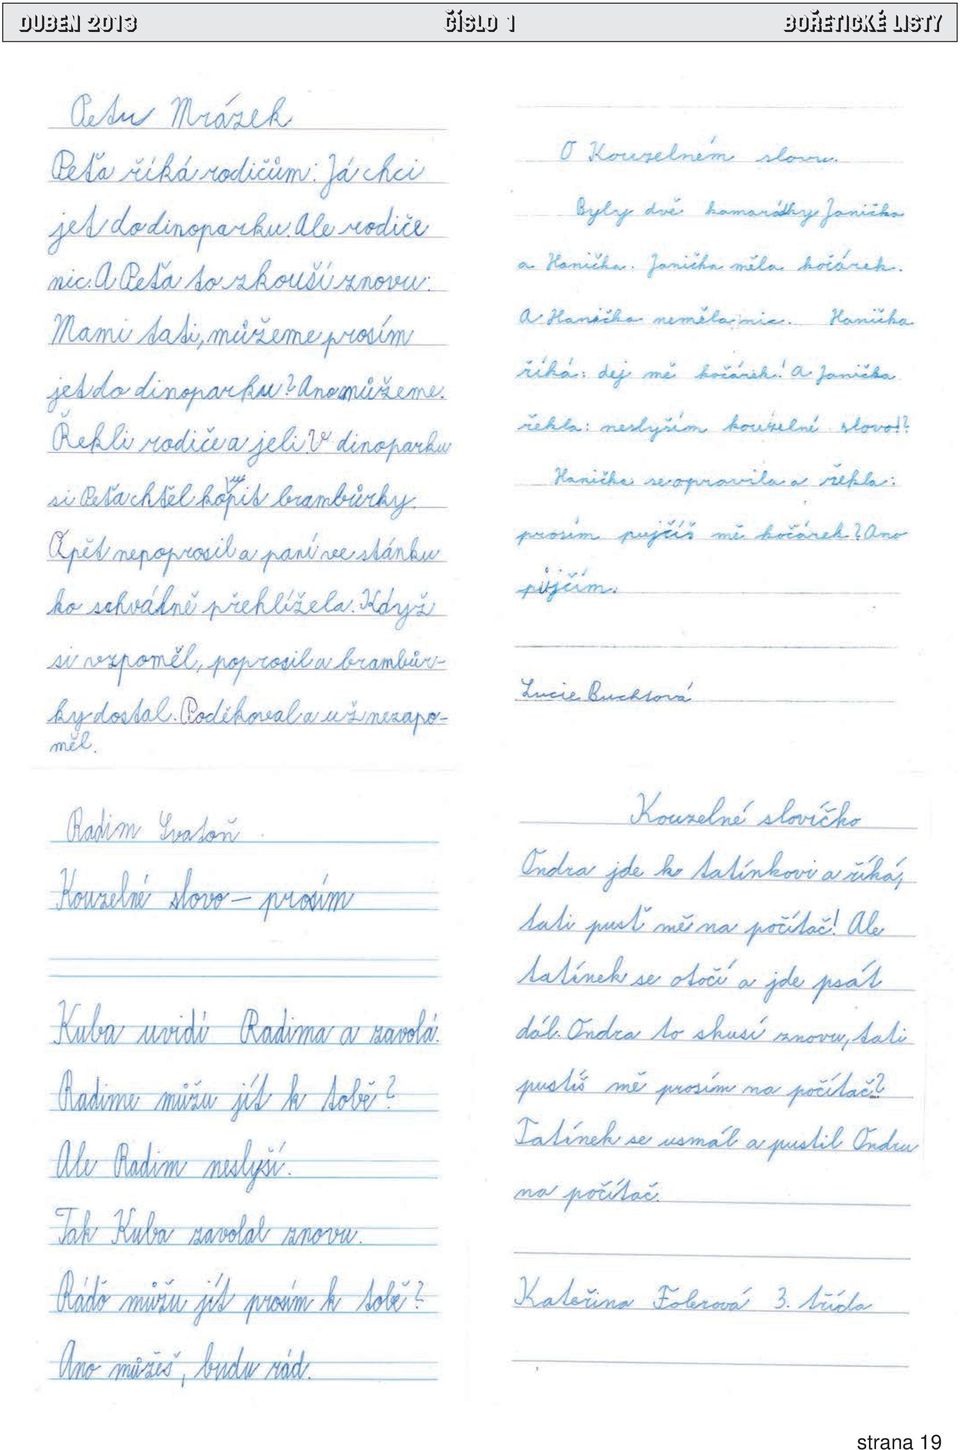 DUBEN 2013 ČÍSLO 1 BOŘETICKÉ LISTY
Petr Mrázek
Peťa říká rodičům: Já chci
jet do dinoparku. Ale rodiče
nic. A Peťa to zkouší znovu:
Mami tati, můžeme prosím
jet do dinoparku? Ano můžeme.
Řekli rodiče a jeli. V dinoparku
si Peťa chtěl kopit brambůrky.
Opět nepoprosil a paní ve stánku
ho schválně přehlížela. Když
si vzpoměl, poprosil a brambůr-
ky dostal. Poděkoval a už nezapo-
měl.
O Kouzelném slovu.
Byly dvě kamarádky Janička
a Hanička. Janička měla kočárek.
A Hanička neměla nic. Hanička
říká: dej mě kočárek! A Janička
řekla: neslyším kouzelné slovo!?
Hanička se opravila a řekla:
prosím pujčíš mě kočárek? Ano
půjčím.
Lucie Buchtová
Radim Svatoň
Kouzelné slovo – prosím
Kuba uvidí Radima a zavolá.
Radime můžu jít k tobě?
Ale Radim neslyší.
Tak Kuba zavolal znovu.
Ráďo můžu jít prosím k tobě?
Ano můžeš, budu rád.
Kouzelné slovíčko
Ondra jde k tatínkovi a říká,
tati pusť mě na počítač! Ale
tatínek se otočí a jde psát
dál. Ondra to skusí znovu, tati
pustíš mě prosím na počítač?
Tatínek se usmál a pustil Ondru
na počítač.
Kateřina Foberová 3. třída
strana 19